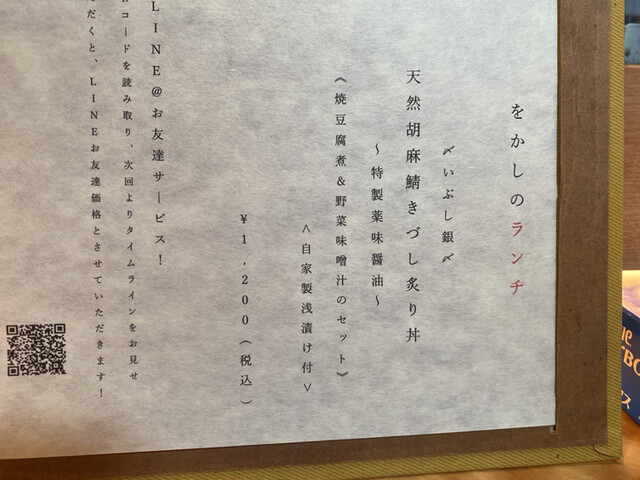 をかしのランチ
〆いぶし銀〆
天然胡麻鯖きづし炙り丼
～特製薬味醤油～
《焼豆腐煮&野菜味噌汁のセット》
<自家製浅漬け付>
¥1,200(税込)
LINE@お友達サービス!
コードを読み取り、次回よりタイムラインをお見せ
だくと、LINEお友達価格とさせていただきます!